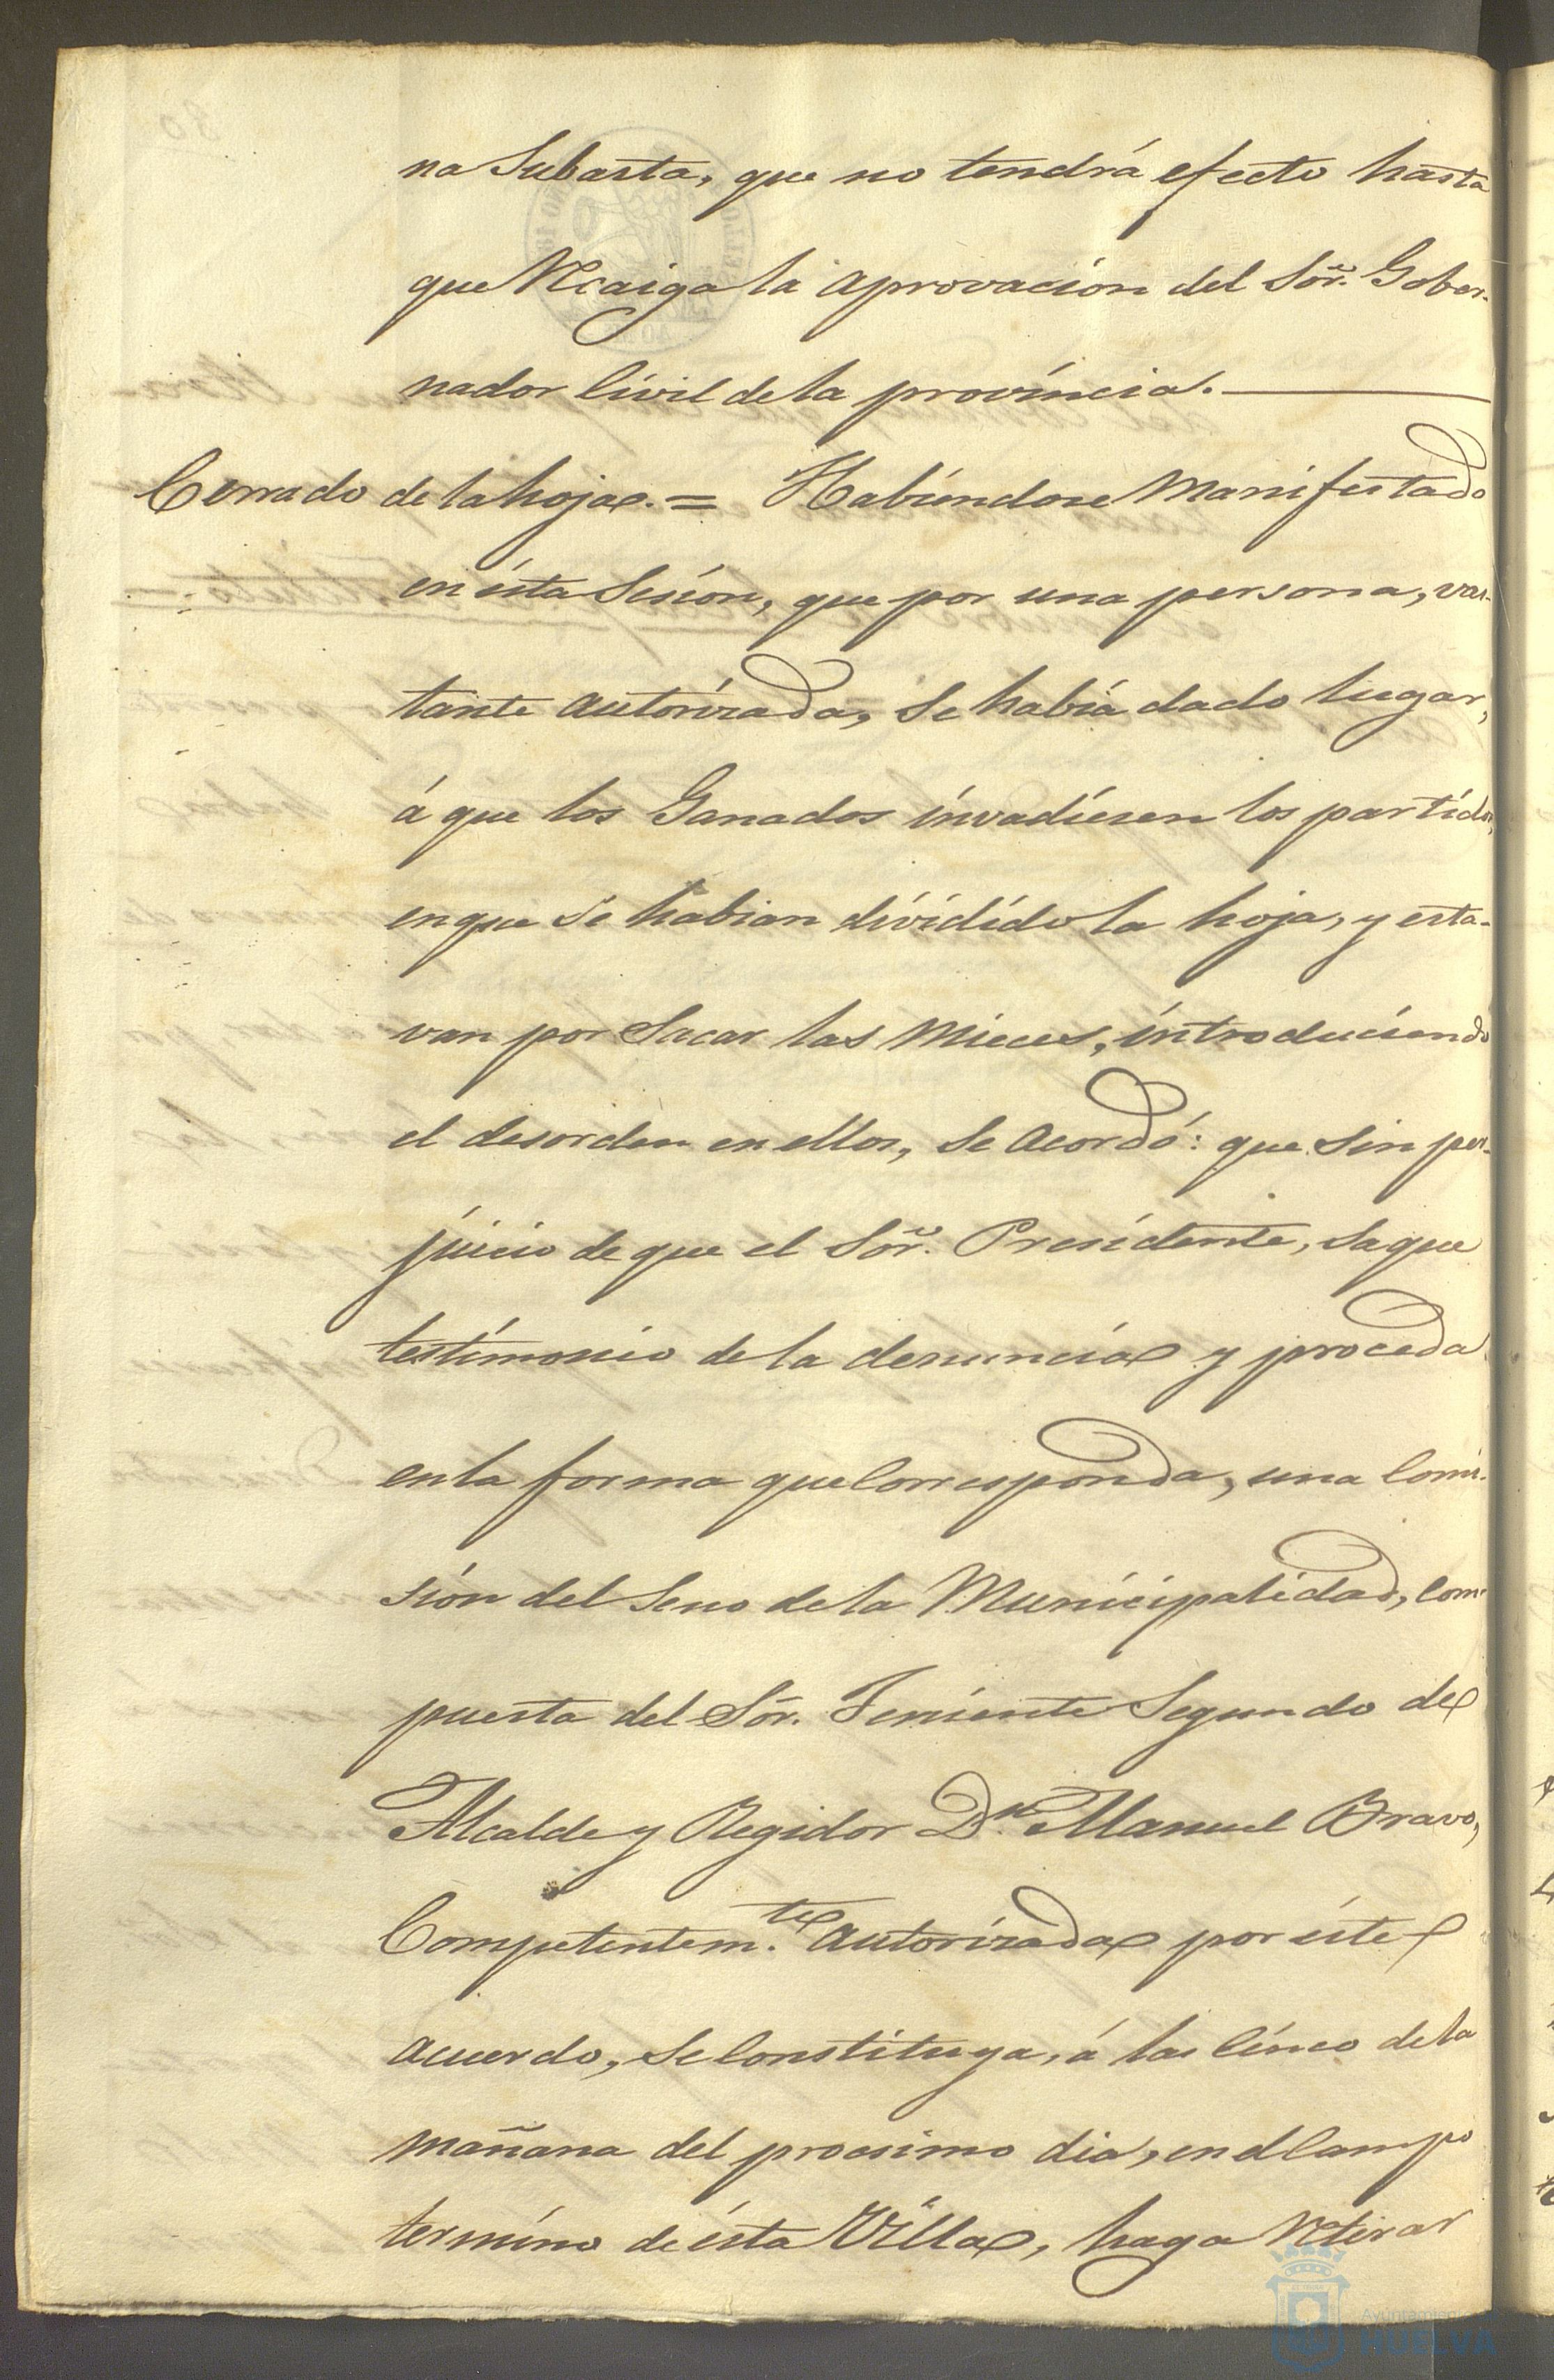 na Subasta, que no tendrá efecto hasta
que Recaiga la aprovacion del Sōr. Gober-
nador Civil de la provincia.
Cerrado de la hoja. = Habiendose Manifestado
en ésta Sesion, que por una persona, vas-
tante autorizada, Se habia dado lugar,
á que los Ganados invadiesen los partidos,
en que Se habian dividido la hoja, y esta-
van por Sacar las Mieces, introduciendo
el desorden en ellos, Se acordó: que Sin per-
juicio de que el Sōr. Presidente, Saque
testimonio de la denuncia y proceda
en la forma que Corresponda, una Comi-
sion del Seno de la Municipalidad, Com-
puesta del Sōr. Teniente Segundo de
Alcalde y Regidor Dn. Manuel Bravo,
Competentem.te autorizada por éste
acuerdo, Se Constituya, á las Cinco de la
mañana del procsimo dia, en el Campo
termino de ésta Villa, haga Retirar
Ayuntamien
HUELVA